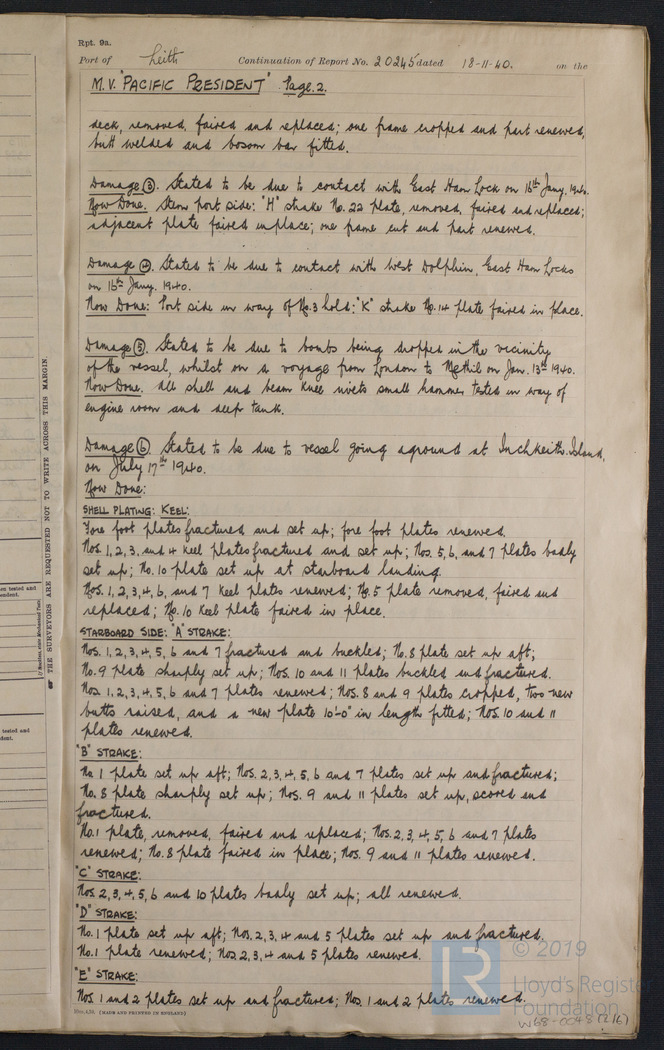 Rpt. 9a.
Port of Leith Continuation of Report No. 20245 dated 18-11-40. on the
M.V. "PACIFIC PRESIDENT" Page. 2.
deck, removed, faired and replaced; one frame cropped and part renewed,
butt welded and bosom bar fitted.
Damage ③. Stated to be due to contact with East Ham Lock on 16th Jany. 1940.
Now Done. Stem port side: "H" strake No. 22 plate, removed, faired and replaced;
adjacent plate faired inplace; one frame cut and part renewed.
Damage ④. Stated to be due to contact with West Dolphin, East Ham Locks
on 16th Jany. 1940.
Now Done: Port side in way of No. 3 hold: "K" strake No. 14 plate faired in place.
Damage ⑤. Stated to be due to bombs being dropped in the vicinity
of the vessel, whilst on a voyage from London to Methil on Jan. 13th 1940.
Now Done. All shell and beam knee rivets small hammer tested in way of
engine room and deep tank.
Damage ⑥. Stated to be due to vessel going aground at Inchkeith Island,
on July 17th 1940.
Now Done:
SHELL PLATING: KEEL:
Fore foot plates fractured and set up; fore foot plates renewed.
Nos. 1, 2, 3, and 4 keel plates fractured and set up; Nos. 5, 6, and 7 plates badly
set up; No. 10 plate set up at starboard landing
Nos. 1, 2, 3, 4, 6, and 7 keel plates renewed; No. 5 plate removed, faired and
replaced; No. 10 keel plate faired in place.
STARBOARD SIDE: "A" STRAKE:
Nos. 1, 2, 3, 4, 5, 6 and 7 fractured and buckled; No. 8 plate set up aft;
No. 9 plate sharply set up; Nos. 10 and 11 plates buckled and fractured.
Nos. 1, 2, 3, 4, 5, 6 and 7 plates renewed; Nos. 8 and 9 plates cropped, two new
butts raised, and a new plate 10'-0" in length fitted; Nos. 10 and 11
plates renewed.
"B" STRAKE:
No. 1 plate set up aft; Nos. 2, 3, 4, 5, 6 and 7 plates set up and fractured;
No. 8 plate sharply set up; Nos. 9 and 11 plates set up, scored and
fractured.
No. 1 plate, removed, faired and replaced; Nos. 2, 3, 4, 5, 6 and 7 plates
renewed; No. 8 plate faired in place; Nos. 9 and 11 plates renewed.
"C" STRAKE:
Nos. 2, 3, 4, 5, 6 and 10 plates badly set up; all renewed.
"D" STRAKE:
No. 1 plate set up aft; Nos. 2, 3, 4 and 5 plates set up and fractured.
No. 1 plate renewed; Nos. 2, 3, 4 and 5 plates renewed.
"E" STRAKE:
Nos. 1 and 2 plates set up and fractured; Nos. 1 and 2 plates renewed.
(MADE AND PRINTED IN ENGLAND)
THE SURVEYORS ARE REQUESTED NOT TO WRITE ACROSS THIS MARGIN.
tested and
LR
© 2019
Lloyd's Register
Foundation
W68-0048 (2/6)